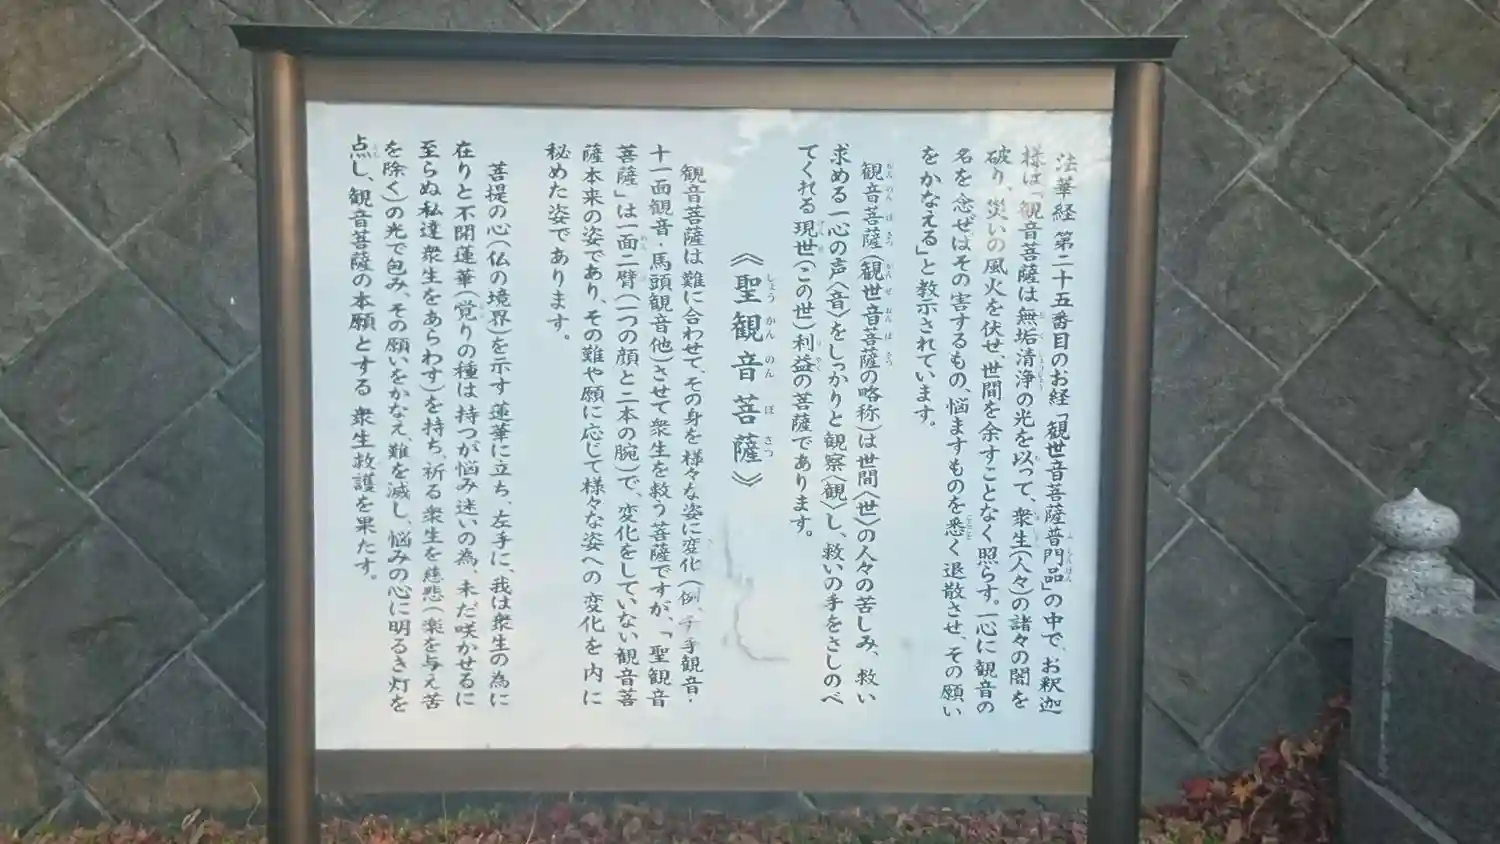 法華経 第二十五番目のお経「観世音菩薩普門品」の中で、お釈迦
様は「観音菩薩は無垢清浄の光を以って、衆生(人々)の諸々の闇を
破り、災いの風火を伏せ、世間を余すことなく照らす。一心に観音の
名を念ぜばその害するもの、悩ますものを悉く退散させ、その願い
をかなえる」と教示されています。
観音菩薩(観世音菩薩の略称)は世間〈世〉の人々の苦しみ、救い
求める一心の声〈音〉をしっかりと観察〈観〉し、救いの手をさしのべ
てくれる現世(この世)利益の菩薩であります。
《聖観音菩薩》
しょうかんのんぼさつ
観音菩薩は難に合わせて、その身を様々な姿に変化(例、千手観音・
十一面観音・馬頭観音他)させて衆生を救う菩薩ですが、「聖観音
菩薩」は一面二臂(一つの顔と二本の腕)で、変化をしていない観音菩
薩本来の姿であり、その難や願に応じて様々な姿への変化を内に
秘めた姿であります。
菩提の心(仏の境界)を示す蓮華に立ち、左手に、我は衆生の為に
在りと不開蓮華(覚りの種は持つが悩み迷いの為、未だ咲かせるに
至らぬ私達衆生をあらわす)を持ち、祈る衆生を慈悲(楽を与え苦
を除く)の光で包み、その願いをかなえ、難を滅し、悩みの心に明るき灯を
点し、観音菩薩の本願とする 衆生救護を果たす。